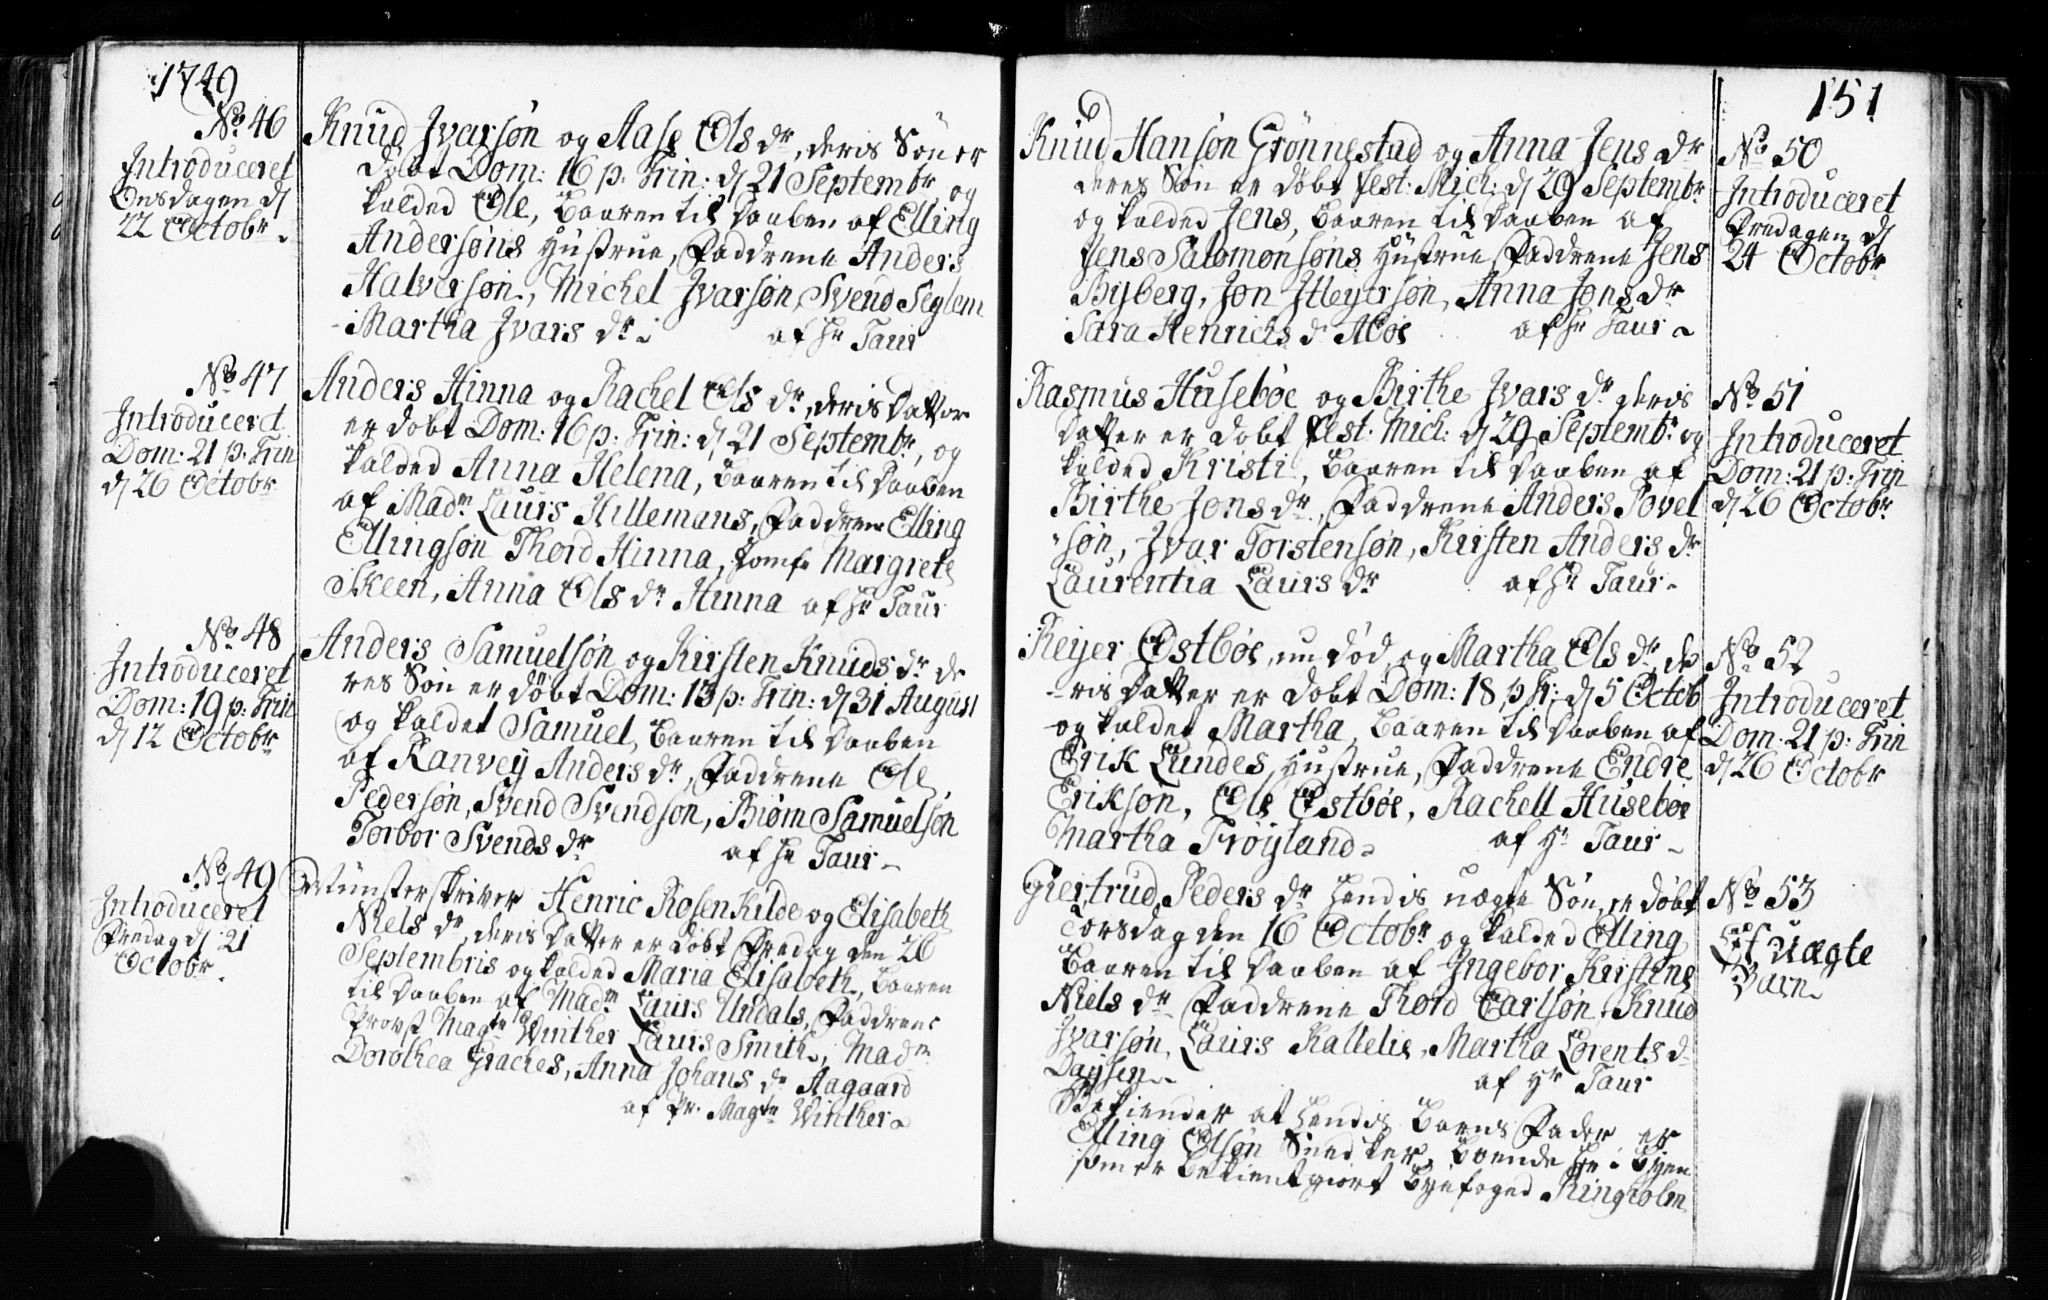 1749
No 46
Introduceret
Onsdagen d
22 Octobr
Knud Jvarsøn og Aase Ols dr, deris Søn er
døbt Dom: 16 p: Trin: d 21 Septembr og
kalded Ole, baaren til daaben af Elling
Andersøns Hustrue, Faddrene Anders
Halversøn, Michel Jvarsøn, Svend Seglem
Martha Jvars dr. af Hr Taur
No 47
Introduceret
Dom: 21 p: Trin
d 26 Octobr
Anders Hinna og Rachel Ols dr, deris datter
er døbt Dom: 16 p: Trin: d 21 Septembr, og
kalded Anna Helena, baaren til daaben
af Madm Laurs Hillemans, Faddrene Elling
Ellingsøn Thord Hinna, Jomfr Margrete
Skeen, Anna Ols dr Hinna af Hr Taur
No 48
Introduceret
Dom: 19 p: Trin
d 12 Octobr
Anders Samuelsøn og Kirsten Knuds dr de
res Søn er døbt Dom: 13 p: Trin: d 31 August
og kaldet Samuel, baaren til daaben
af Ranvey Anders dr, Faddrene Ole
Pedersøn, Svend Svendson, Biørn Samuelsøn
Torbor Svends dr af Hr Taur
No 49
Introduceret
Fredag d 21
Octobr
Münsterskriver Henric Rosenkilde og Elisabeth
Niels dr, deris datter er døbt Fredag den 26
Septembris og kalded Maria Elisabeth, baaren
til daaben af Madm Laurs Undals, Faddrene
Provst Magtr Winther Laurs Smith, Madm
Dorothea Graches, Anna Johans dr Aagaard
af Pr. Magtr Winther
151
Knud Hansøn Grönnestad og Anna Jens dr
deres Søn er døbt Fest: Mich: d 29 Septembr
og kalded Jens, baaren til daaben af
Jens Salomonsøns Hustrue, Faddrene Jens
Byberg, Jon Meyersøn, Anna Jons dr
Sara Henrichs d Aboe af Hr Taur
No 50
Introduceret
Fredagen d
24 Octobr
Rasmus Husebøe og Birthe Jvars dr deris
datter er døbt Fest: Mich: d 29 Septembr og
kalded Kristi, baaren til daaben af
Birthe Jons dr, Faddrene Anders Povel
søn, Jvar Torstensøn, Kirsten Anders dr
Laurentia Laurs dr af Hr Taur
No 51
Introduceret
Dom: 21 p: Trin
d 26 Octobr
Reyer Østbøe, nu død, og Martha Ols dr, de
ris datter er døbt Dom: 18 p Tr: d 5 Octob
og kaldet Martha, baaren til daaben af
Erik Lundes Hustrue, Faddrene Endre
Eriksøn, Ole Østbøe, Rachell Husebøe
Martha Trøyland af Hr Taur
No 52
Introduceret
Dom: 21 p: Trin
d 26 Octobr
Giertrud Peders dr hendis uægte Søn, er døbt
Torsdag den 16 Octobr og kalded Elling
baaren til daaben af Jngebor Kirstine
Niels dr Faddrene Thord Carlsøn, Knud
Jvarsøn, Laurs Kallelie, Martha Lorents d
Daysen af Hr Taur
Bekiender at hendis barns Fader er
Elling Olsøn Snedker, boende her i Byen
som er bekientgiort Byefoged Ringholm
No 53
Et uægte
Barn